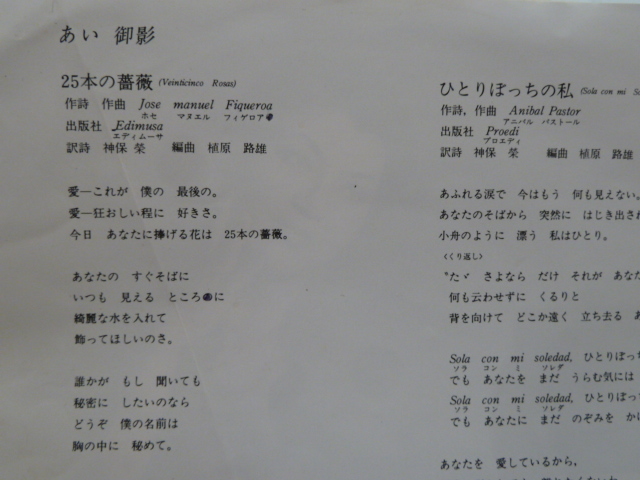 あい 御影
25本の薔薇 (Veinticinco Rosas)
作詩 作曲 Jose manuel Fiqueroa
ホセ マヌエル フィゲロア
出版社 Edimusa
エディムーサ
訳詩 神保 榮 編曲 植原 路雄
愛―これが 僕の 最後の。
愛―狂おしい程に 好きさ。
今日 あなたに捧げる花は 25本の薔薇。
あなたの すぐそばに
いつも 見える ところに
綺麗な水を入れて
飾ってほしいのさ。
誰かが もし 聞いても
秘密に したいのなら
どうぞ 僕の名前は
胸の中に 秘めて。
ひとりぼっちの私 (Sola con mi
作詩, 作曲 Anibal Pastor
アニバル パストール
出版社 Proedi
プロエディ
訳詩 神保 榮 編曲 植原 路雄
あふれる涙で 今はもう 何も見えない。
あなたのそばから 突然に はじき出され
小舟のように 漂う 私はひとり。
〈くり返し〉
〝たゞ さよなら だけ それが あな
何も云わせずに くるりと
背を向けて どこか遠く 立ち去る あ
Sola con mi soledad, ひとりぼっ
ソラ コン ミ ソレダ
でも あなたを まだ うらむ気には
Sola con mi soledad, ひとりぼっ
ソラ コン ミ ソレダ
でも あなたに まだ のぞみを か
あなたを 愛しているから、